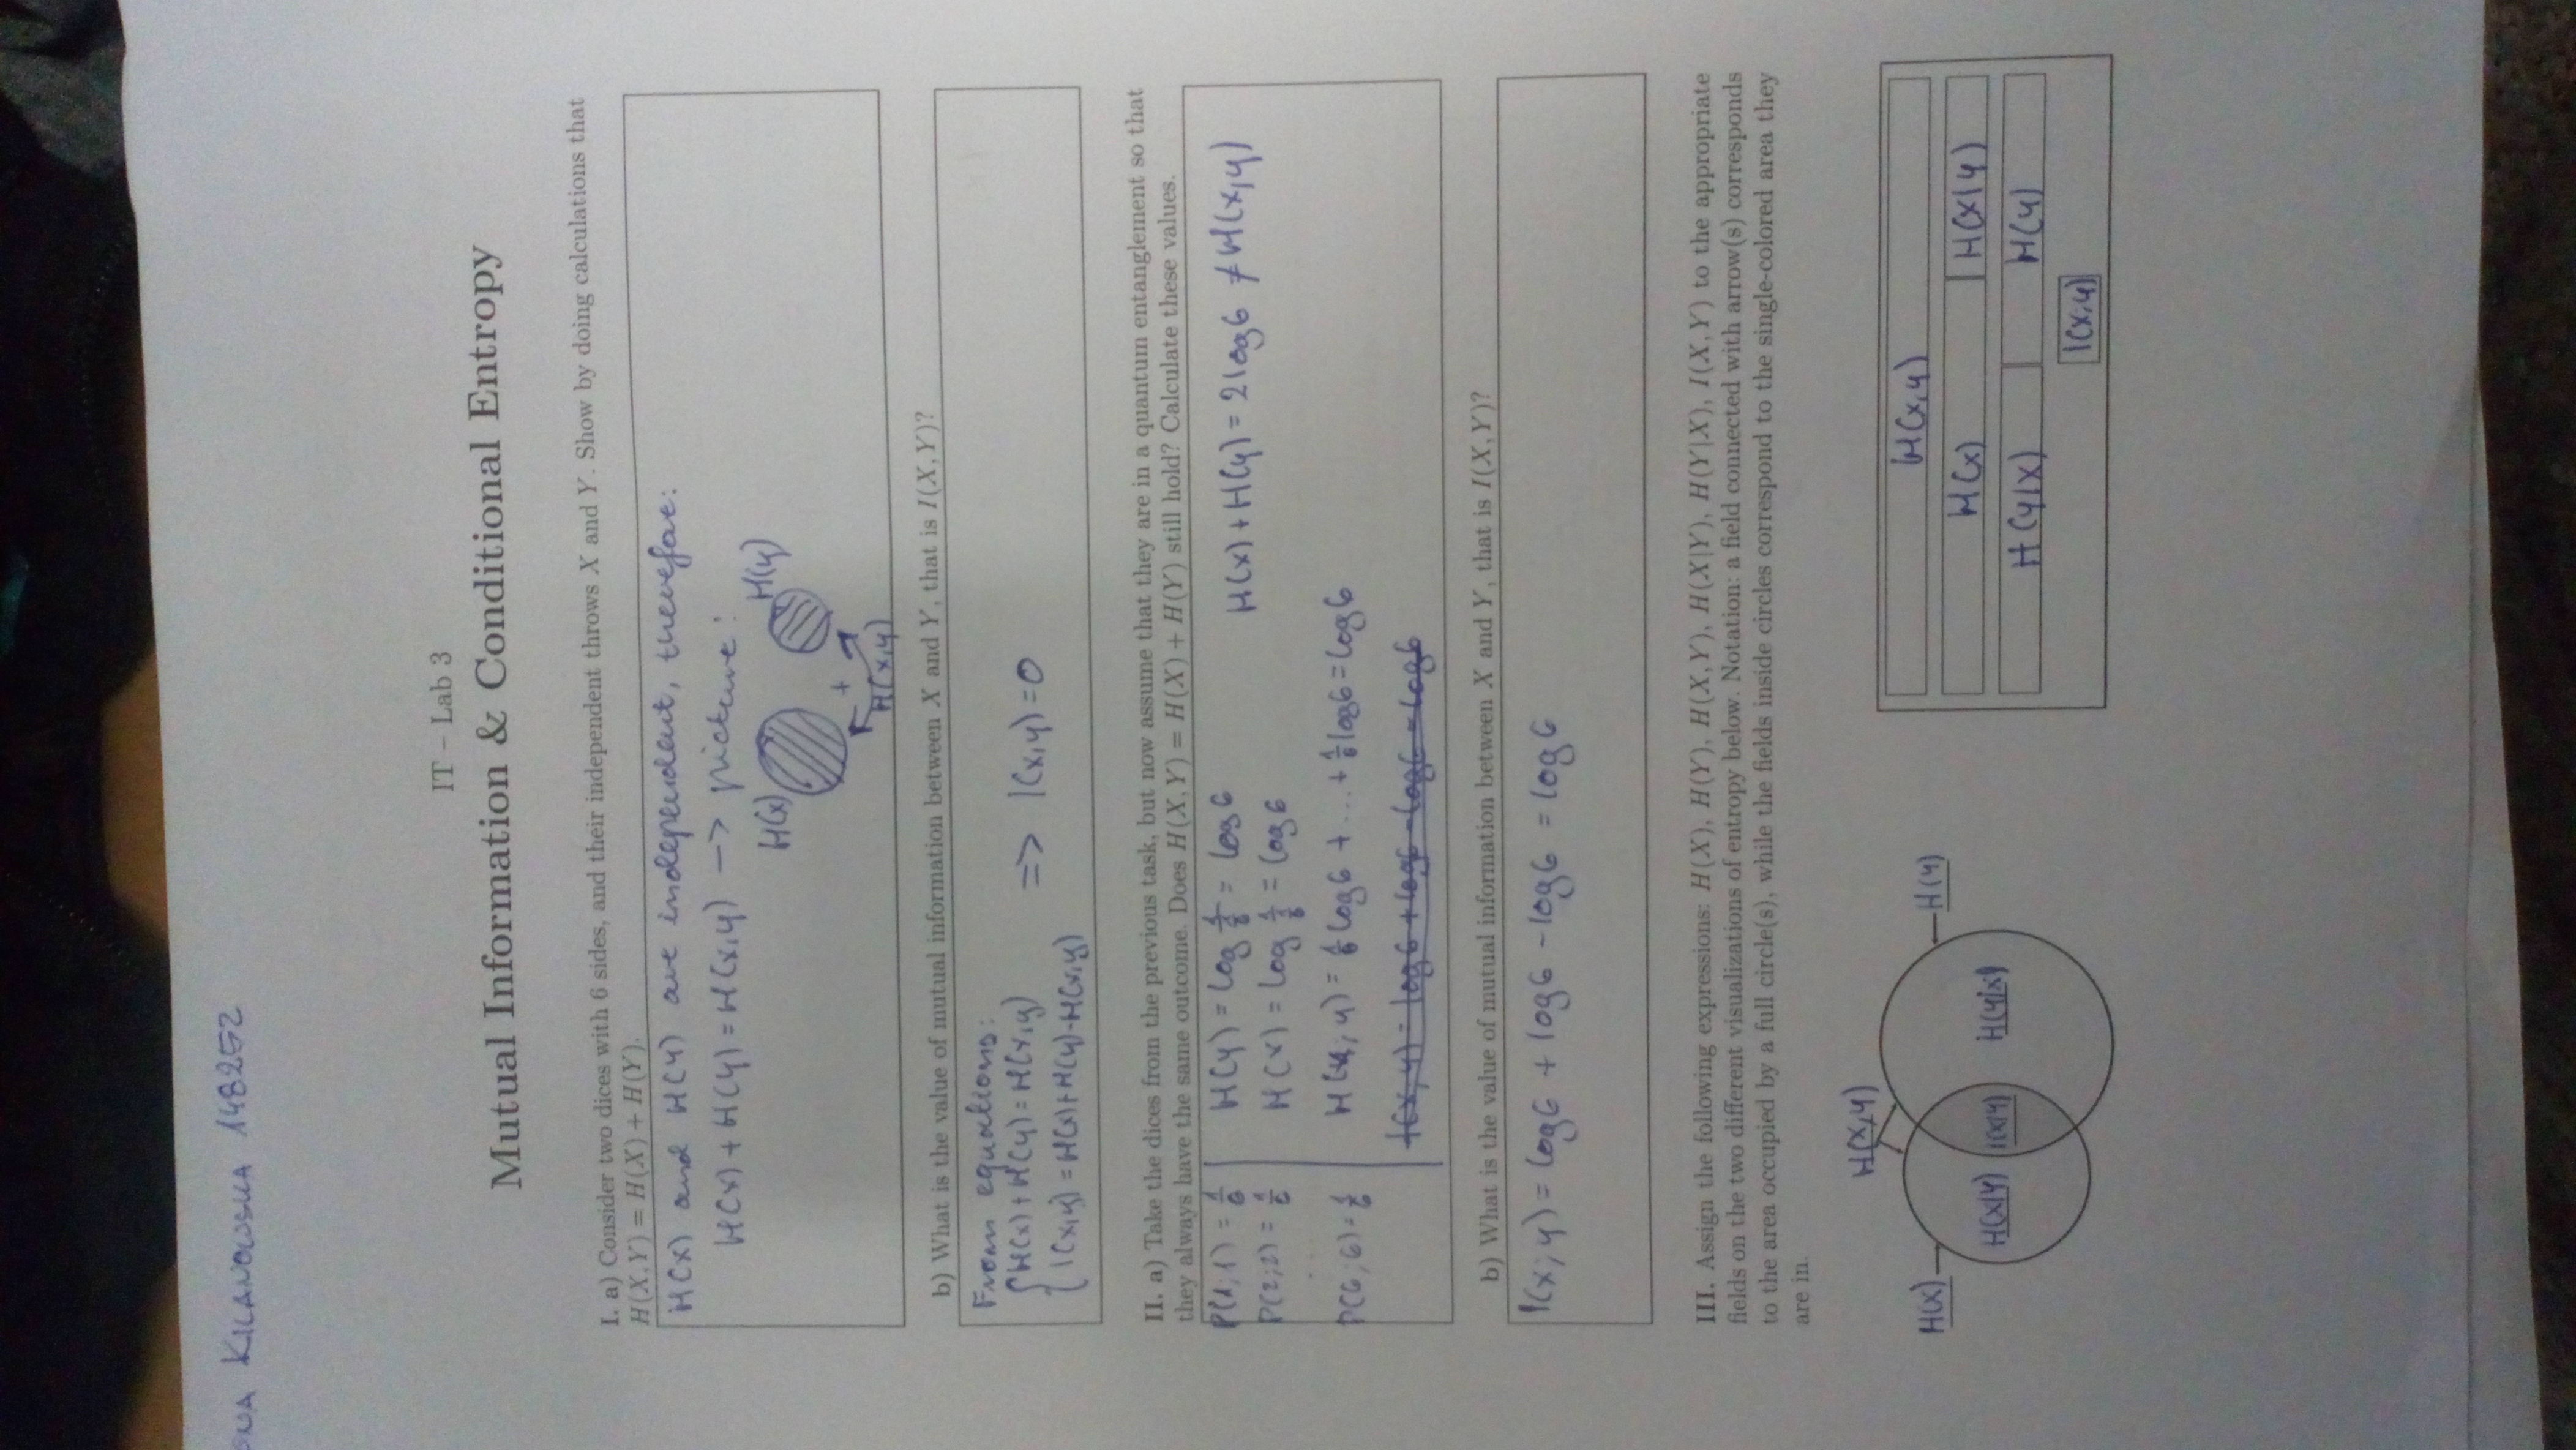 KILANOWSKA 148252
IT – Lab 3
Mutual Information & Conditional Entropy
I. a) Consider two dices with 6 sides, and their independent throws X and Y. Show by doing calculations that
H(X,Y) = H(X) + H(Y).
H(X) and H(Y) are independent, therefore:
H(X) + H(Y) = H(X,Y) -> picture:
H(X) H(Y)
+
H(X,Y)
b) What is the value of mutual information between X and Y, that is I(X,Y)?
From equations:
{ H(X) + H(Y) = H(X,Y)
{ I(X,Y) = H(X)+H(Y)-H(X,Y) => I(X,Y) = 0
II. a) Take the dices from the previous task, but now assume that they are in a quantum entanglement so that
they always have the same outcome. Does H(X,Y) = H(X) + H(Y) still hold? Calculate these values.
P(1;1) = 1/6 H(Y) = log 1/(1/6) = log 6 H(X) + H(Y) = 2log6 ≠ H(X,Y)
P(2;2) = 1/6 H(X) = log 1/(1/6) = log 6
...
P(6;6) = 1/6 H(X;Y) = 1/6 log6 + ... + 1/6 log6 = log6
I(X;Y) = log6 + log6 - log6 = log6
b) What is the value of mutual information between X and Y, that is I(X,Y)?
I(X;Y) = log6 + log6 - log6 = log6
III. Assign the following expressions: H(X), H(Y), H(X,Y), H(X|Y), H(Y|X), I(X,Y) to the appropriate
fields on the two different visualizations of entropy below. Notation: a field connected with arrow(s) corresponds
to the area occupied by a full circle(s), while the fields inside circles correspond to the single-colored area they
are in.
H(X,Y)
H(X) H(Y)
H(X|Y) I(X;Y) H(Y|X)
H(X,Y)
H(X) H(X|Y)
H(Y|X) H(Y)
I(X;Y)